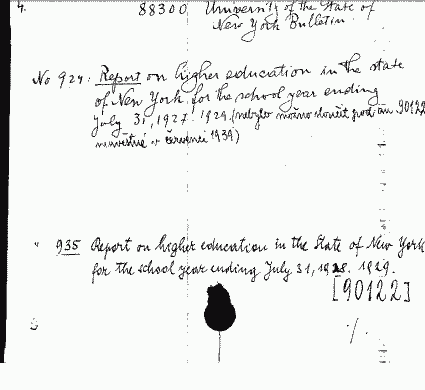 4. 88300 University of the State of
New York Bulletin.
No 924: Report on higher education in the state
of New York, for the school year ending
July 31, 1927. 1929. (nebylo možno sloučit pod čís. 90122
v červenci 1939)
" 935 Report on higher education in the State of New York
for the school year ending July 31, 1928. 1929.
[90122]
./.